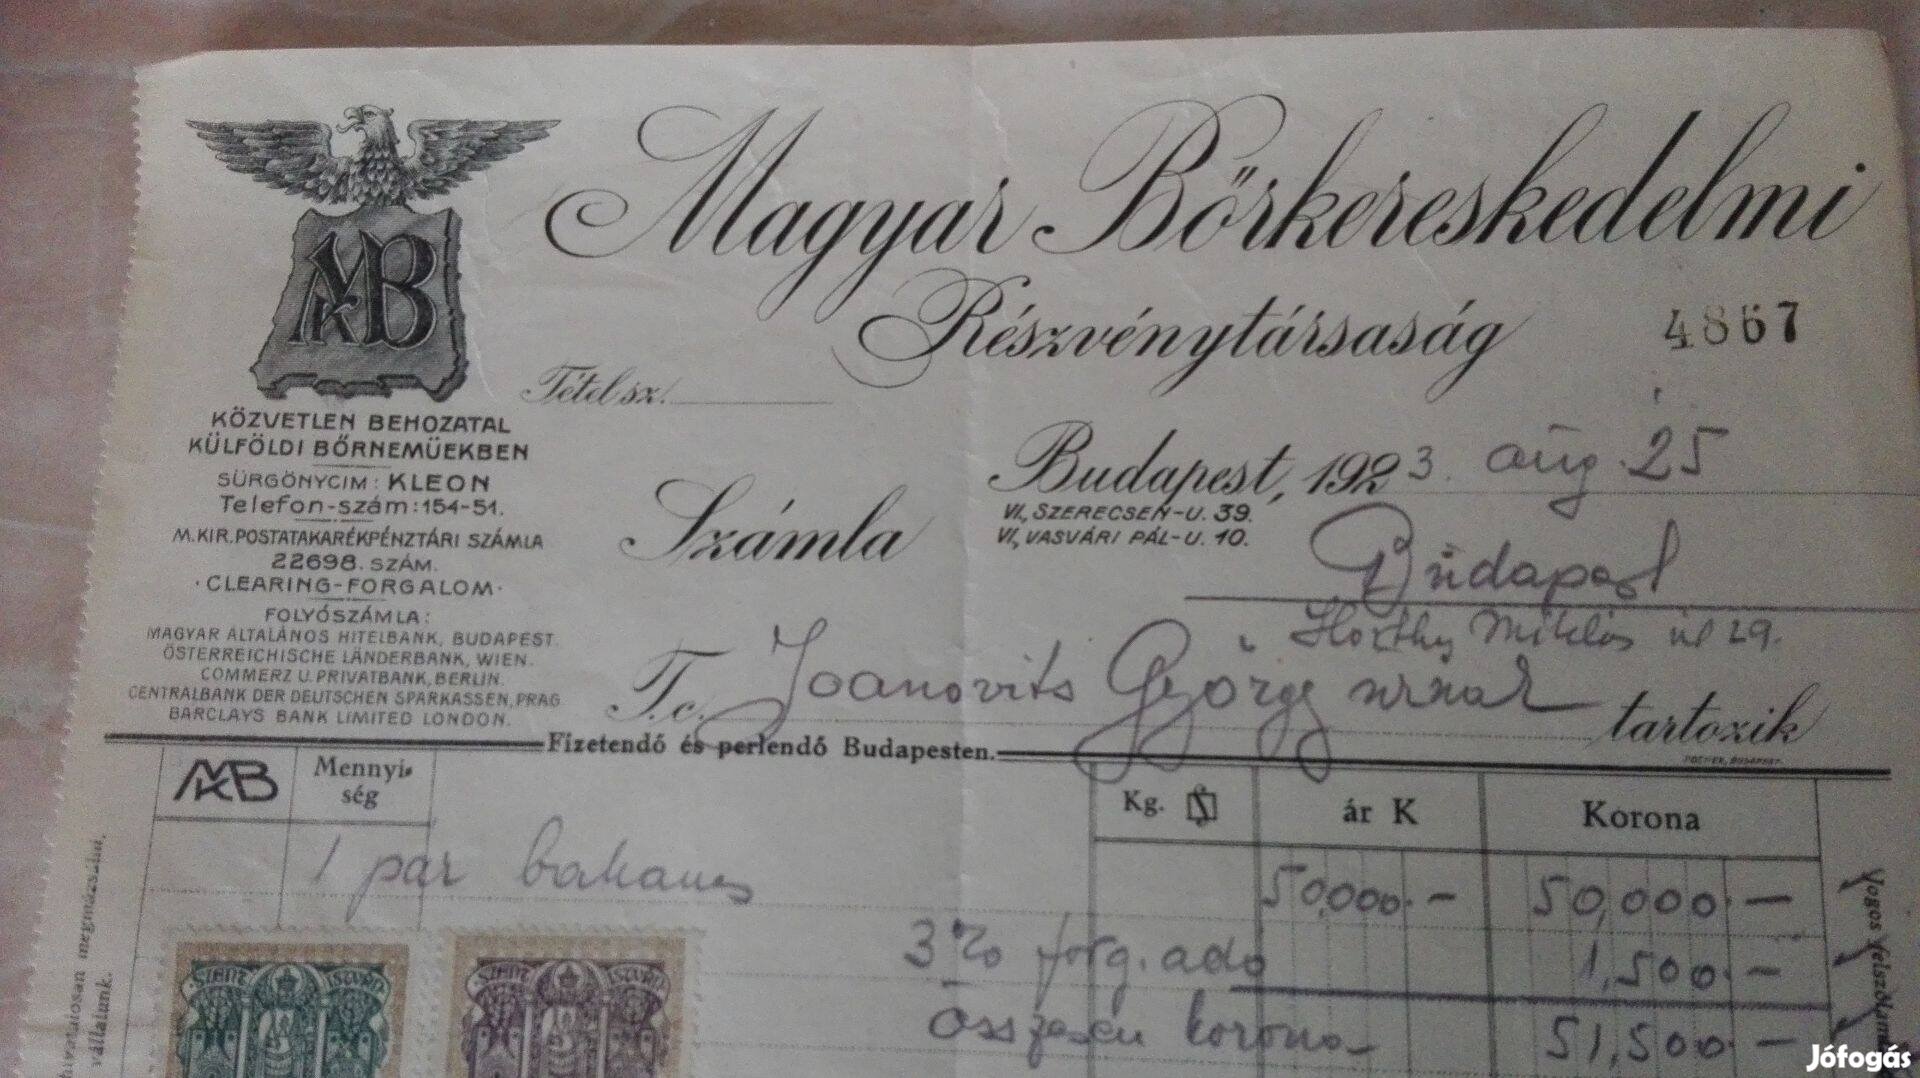 Magyar Bőrkereskedelmi
Részvénytársaság
4867
MKB
Tétel sz.
KÖZVETLEN BEHOZATAL
KÜLFÖLDI BŐRNEMÜEKBEN
SÜRGÖNYCIM: KLEON
Telefon-szám: 154-51.
M. KIR. POSTATAKARÉKPÉNZTÁRI SZÁMLA
22698. SZÁM.
·CLEARING-FORGALOM·
FOLYÓSZÁMLA:
MAGYAR ÁLTALÁNOS HITELBANK, BUDAPEST.
ÖSTERREICHISCHE LÄNDERBANK, WIEN.
COMMERZ U. PRIVATBANK, BERLIN.
CENTRALBANK DER DEUTSCHEN SPARKASSEN, PRAG
BARCLAYS BANK LIMITED LONDON.
Számla
Budapest, 1923. aug. 25
VI., SZERECSEN-U. 39.
VI., VASVÁRI PÁL-U. 10.
Budapest
Horthy Miklós út 29.
T. c. Joanovits György urnak tartozik
Fizetendő és perlendő Budapesten.
MKB Mennyiség Kg. ár K Korona
1 par bakancs 50,000.- 50,000.-
3% forg. adó 1,500.-
Összesen korona 51,500.-
SZENT ISTVÁN
SZENT ISTVÁN
hivatatosan megmázsálni.
vállalunk.
Jogos felszólam
Jófogás